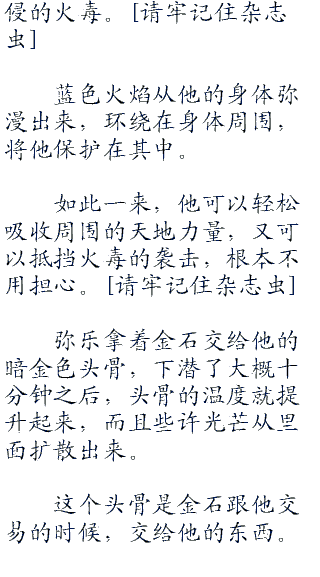 侵的火毒。[请牢记住杂志
虫]
蓝色火焰从他的身体弥
漫出来，环绕在身体周围，
将他保护在其中。
如此一来，他可以轻松
吸收周围的天地力量，又可
以抵挡火毒的袭击，根本不
用担心。[请牢记住杂志虫]
弥乐拿着金石交给他的
暗金色头骨，下潜了大概十
分钟之后，头骨的温度就提
升起来，而且些许光芒从里
面扩散出来。
这个头骨是金石跟他交
易的时候，交给他的东西。